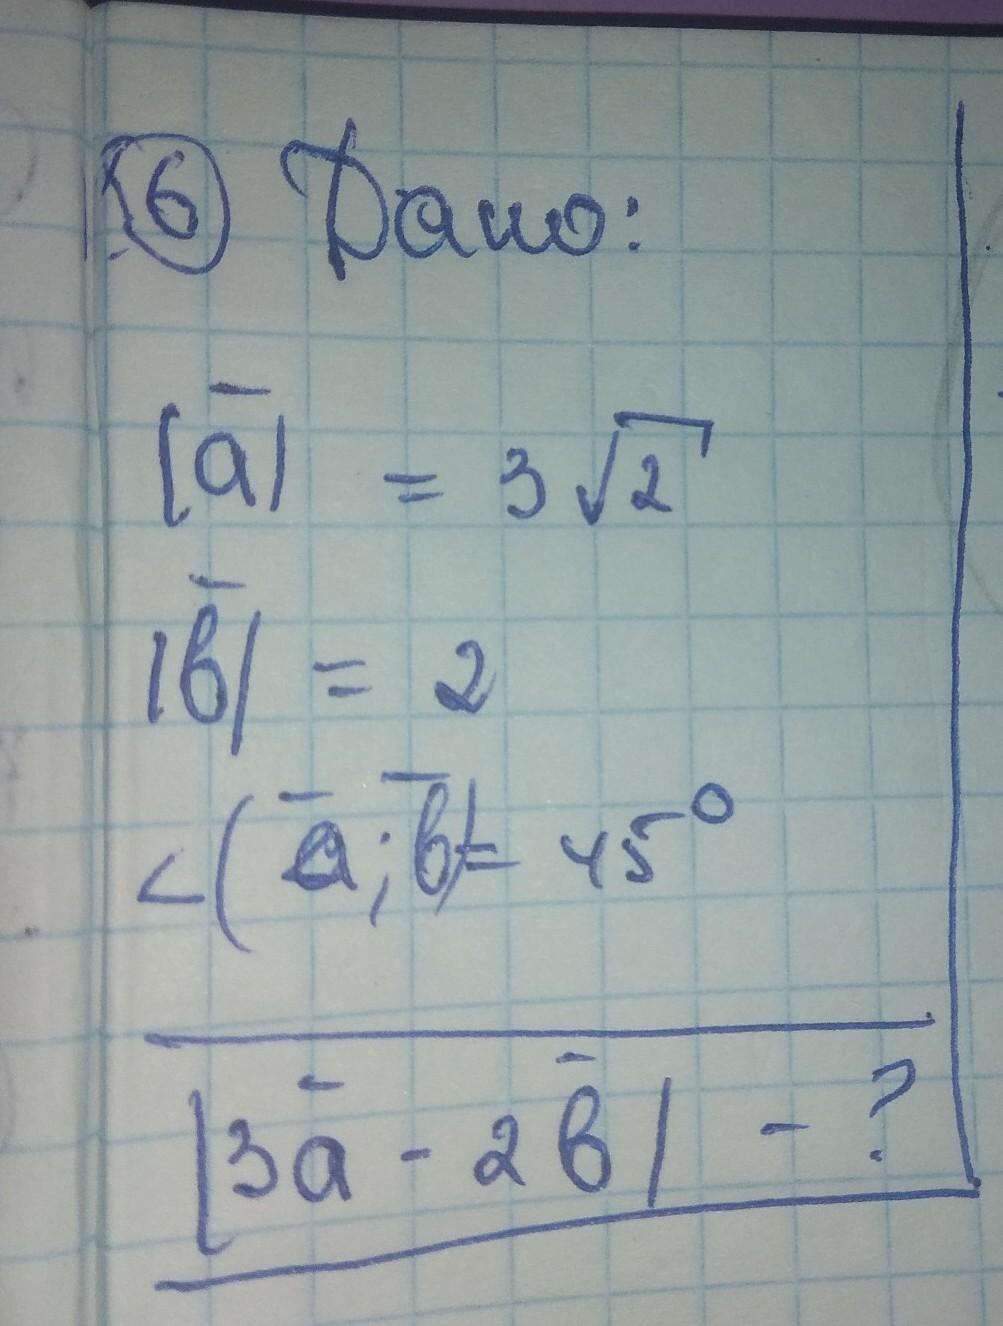 6 Дано:
|a̅| = 3√2
|b̅| = 2
<(a̅; b̅)= 45°
|3a̅ - 2b̅| - ?